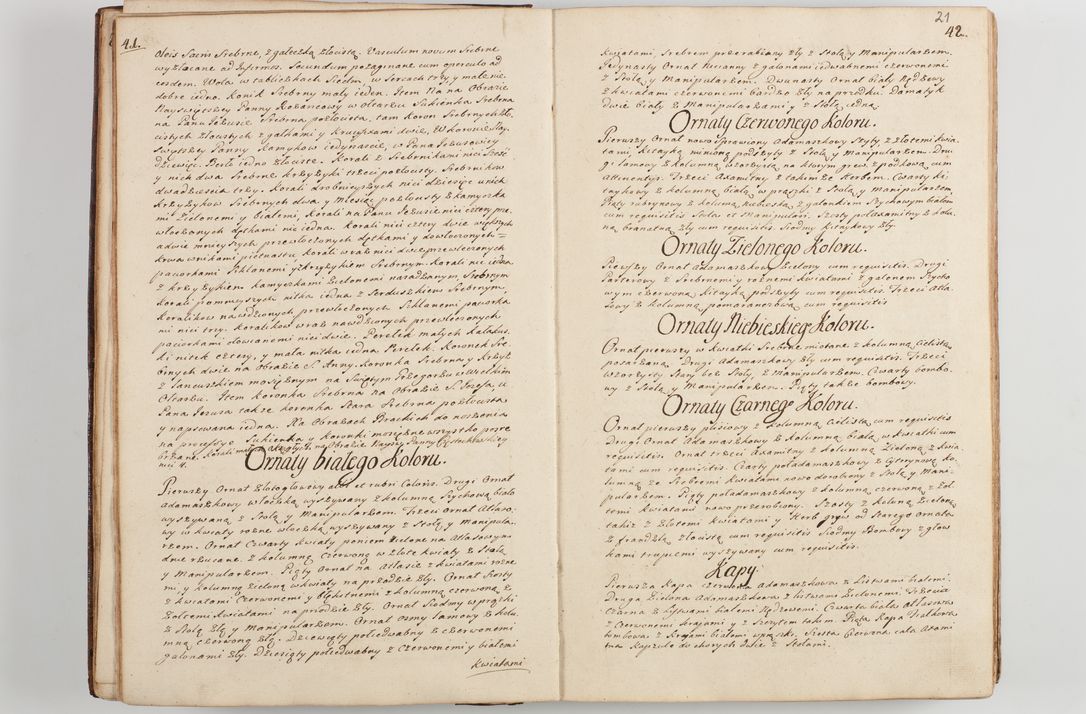 41.
Oleis Sacris Srebrne, z gałeczką złocistą. Vasculum novum Srebrne
wyzłacane ad Infirmos. Secundum pozaginane cum operculo ad
eosdem. Wota w tabliczkach Siedm, w Sercach trzy, y małe nie-
dobre iedno. Konik Srebrny mały ieden. Item Na na Obrazie
Nayswiętszey Panny Rożańcowy w Ołtarzu Sukienka Srebrna
na Panu Jezusie Srebrna pozłocista, tam koron Srebrnych
cistych Złocistych z gałkami y kruczkami dwie, W koronie Nay-
Swiętszey Panny kamykow iedynascie, w Pana Jezusowey
dziewięć. Perło iedno złociste. Korali z Srebrnikami nici Sześć
y nich dwa Srebrne krzyżyki trzeci pozłocisty. Srebrnikow
dwadziescia trzy. Korali drobnieyszych nici dziesięć u nich
krzyżykow Srebrnych dwa, y Miesiąc pozłocisty z kamyczka
mi Zielonemi y białemi, korali na Panu Jezusie nici cztery prze
włoczonych dętkami nic iedna. Korali nici cztery dwie większych
a dwie mnieyszych przewłoczonych dętkami y dowłoczonych
krwawnikami pietnastu korali wraz nici dwie przewłoczonych
paciorkami Szklanemi y krzyżykiem Srebrnym. Korali nic iedna
z krzyżykiem kamyczkami Zielonemi nasadzanym Srebrnym
korali pomnieyszych nitka iedna z Serduszkiem Srebrnym,
Koralikow nawdzionych przewłoczonych Szklanemi paciorka
mi nici trzy. Koralikow wraz nawdzionych przewłoczonych
paciorkami dłowianemi nici dwie. Perełek małych kałakus.
ki nitek cztery, y mała nitka iedna Perełek. Koronek Sre-
brnych dwie na Obrazie S. Anny. Koronka Srebrna y krzyż
z łancuszkiem mosiężnym na Swiętym Grzegorzu w Wielkim
Ołtarzu. Item koronka Srebrna na Obrazie S. Jozefa, u
Pana Jezusa także koronka Stara Srebrna pozłocista
y napsowana iedna. Na Obrazach Brackich do noszenia
na processye Sukienka y koronki mosiężne wszystko posre
brzane. Korali na Obrazie Nayszey Panny Częstochowskiey
nici 4.
Ornaty białego Koloru.
Pierwszy Ornat Złotogłowowy albi et rubri Coloris. Drugi Ornat
Adamaszkowy włoczką wyszywany z kolumną Rychową biało
wyszywaną z Stołą y Manipularzem. Trzeci Ornat Atłaso-
wy w kwiaty rożne włoczką wyszywany z Stołą y Manipula-
rzem. Ornat Czwarty kwiaty poniem zielone na Atłasowym
dnie rzucane, z kolumną Czerwoną w złote kwiaty z Stołą
y Manipularzem. Piąty Ornat na Atłasie z kwiatami rożne
mi, y kolumną Zieloną w kwiaty na przodzie zły. Ornat Szosty
z kwiatami Czerwonemi y błękitnemi z kolumną czerwoną z
Żołtemi kwiatami na przodzie zły. Ornat Siodmy w prążki
z Stołą zły y Manipularzem. Ornat osmy lamowy z kolu
mną czerwoną zły. Dziewiąty połiedwabny z czerwonemi
galonami zły. Dziesiąty połiedwabny z Czerwonemi y białemi
kwiatami
21
42.
kwiatami, Srebrem przerabiany zły z Stołą y Manipularzem.
Jedynasty Ornat tkuczanny z galonami iedwabnemi czerwonemi
z Stołą y Manipularzem. Dwunasty Ornat biały Rądzowy
z kwiatami czerwonemi bardzo zły na przodku. Dalmatyk
dwie biały z Manipularzami y z Stołą iedną.
Ornaty Czerwonego Koloru.
Pierwszy Ornat nowo sprawiony Adamaszkowy Szyty z Złotemi kwia-
tami kitayką minioną podszyty z Stołą y Manipularzem. Dru
gi lamowy z kolumną wzorzystą na ktorym grew z podkową cum
Attinentys. Trzeci Axamitny z takimże Herbem. Czwarty ki-
taykowy z kolumną białą w prązki z Stołą y Manipularzem
Piąty rubrynowy z kolumną niebieską, z galonkiem Szychowym białem
cum requisitis Stola et Manipulari. Szosty połaxamitny z kolu
ną branatną zły cum requisitis. Siodmy kitaykowy zły.
Ornaty Zielonego Koloru.
Pierszy Ornat Adamaszkowy Zielony cum requisitis. Drugi
Parterowy z Srebrnemi y rożnemi kwiatami z galonem Szycho
wym czerwoną kitayką podszyty cum requisitis. Trzeci Atła-
sowy z kolumną pomaranczową cum requisitis.
Ornaty Niebieskiego Koloru.
Ornat pierwszy w kwiatki Srebrne miotane z kolumną Cielistą
posadzaną. Drugi Adamaszkowy zły cum requisitis. Trzeci
Wzorzysty Stary bez Stoły z Manipularzem. Czwarty bombo-
wy z Stołą y Manipularzem. Piąty także bombowy.
Ornaty Czarnego Koloru.
Ornat pierwszy pluszowy z kolumną Cielistą cum requisitis
Drugi Ornat Adamaszkowy z kolumną białą w kwiatki cum
requisitis. Ornat trzeci Axamitny z kolumną Zieloną z kwia
tami cum requisitis. Czarty poładamaszkowy z Cytrynową ko-
lumną ze Srebrnemi kwiatami nowo dorobiony z Stołą y Mani-
pularzem. Piąty poładamaszkowy z kolumną czerwoną z żoł-
temi kwiatami nowo przerobiony. Szosty z kolumną Zieloną
takiż z Złotemi kwiatami y Herb grew od Starego Ornatu
z frandzlą złocistą cum requisitis. Siodmy Bombowy z głow
kami trupiemi wyszywany cum requisitis.
Kapy.
Pierwsza Kapa czerwona Adamaszkowa z Listwami białemi.
Druga Zielona Adamaszkowa z listwami Zielonemi. Trzecia
Czarna z Lystwami białemi Rądzowemi. Czwarta biała Atłasowa
z Czerwonemi kraiami y z Szczytem takim. Piąta Kapa Fiałkowa
bombowa z Kraiami białemi w prązki. Szosta Czerwona cała Axami
tna Kapzule do chorych dwie z Stołami.